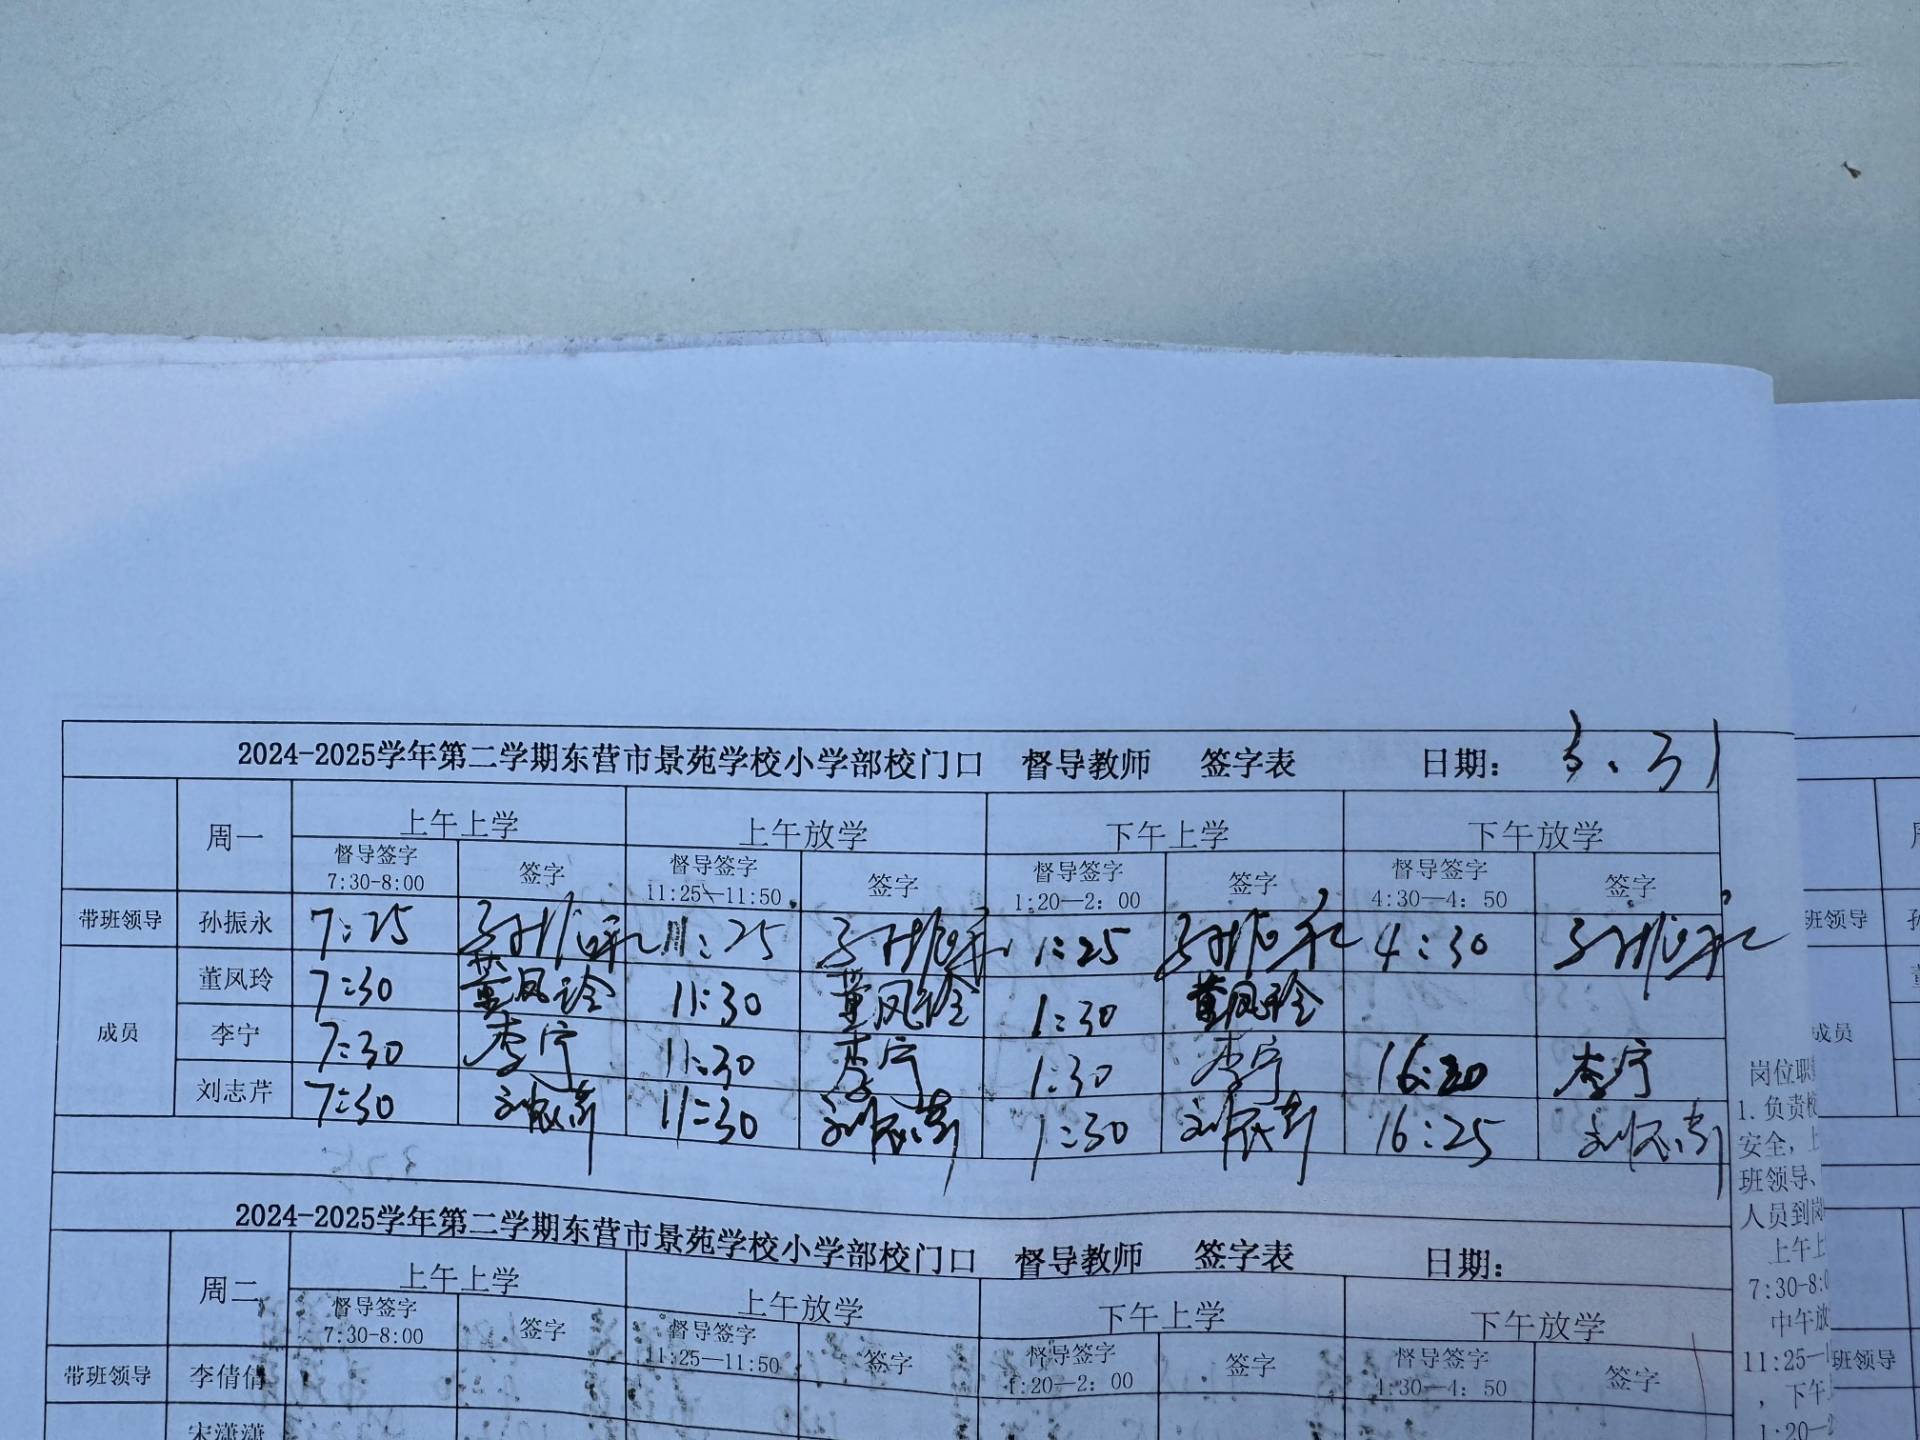 2024-2025学年第二学期东营市景苑学校小学部校门口 督导教师 签字表 日期: 3.31
周一 上午上学 上午放学 下午上学 下午放学
督导签字 7:30-8:00 签字 督导签字 11:25—11:50 签字 督导签字 1:20—2:00 签字 督导签字 4:30—4:50 签字
带班领导 孙振永 7:25 孙振永 11:25 孙振永 1:25 孙振永 4:30 孙振永
成员
董凤玲 7:30 董凤玲 11:30 董凤玲 1:30 董凤玲
李宁 7:30 李宁 11:30 李宁 1:30 李宁 16:20 李宁
刘志芹 7:30 刘志芹 11:30 刘志芹 1:30 刘志芹 16:25 刘志芹
2024-2025学年第二学期东营市景苑学校小学部校门口 督导教师 签字表 日期:
周二 上午上学 上午放学 下午上学 下午放学
督导签字 7:30-8:00 签字 督导签字 11:25—11:50 签字 督导签字 1:20—2:00 签字 督导签字 4:30—4:50 签字
带班领导 李倩倩
宋潇潇
岗位职
1.负责
安全,
班领导、
人员到岗
上午上
7:30-8:0
中午放
11:25—
下午
1:20—2
班领导
成员
班领导